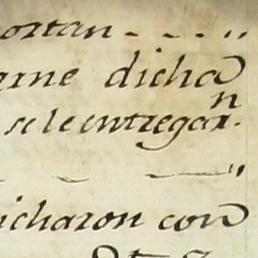 ortan - - - "
arme dicha
se le entregan.
"
icharon con